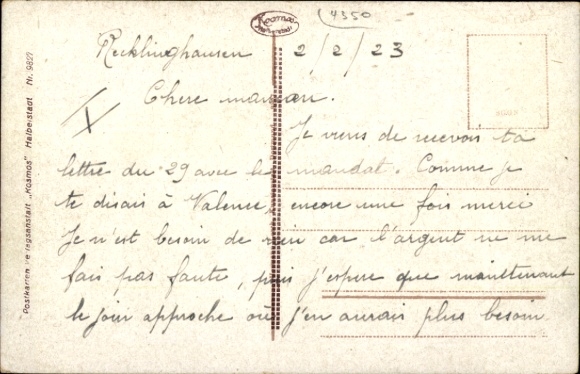 4350
Kosmos
Recklinghausen 2/2/23
X
Chere maman.
Je viens de recevoir ta
lettre du 29 avec le mandat. Comme je
te disais à Valence, encore une fois merci
Je n'est besoin de rien car l'argent ne me
fais pas faute, puis j'espere que maintenant
le jour approche où j'en aurais plus besoin
Postkarten-Verlagsanstalt „Kosmos" Halberstadt Nr. 9827